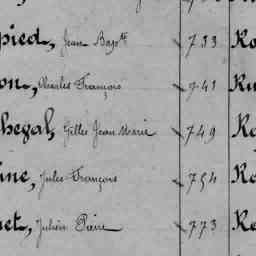 pied, Jean Bapte 1733 Ro
on, Charles François 1741 Ru
hegal, Gilles Jean Marie 1749 Ro
ine, Jules François 1754 Ro
net, Julien Pierre 1773 Ro